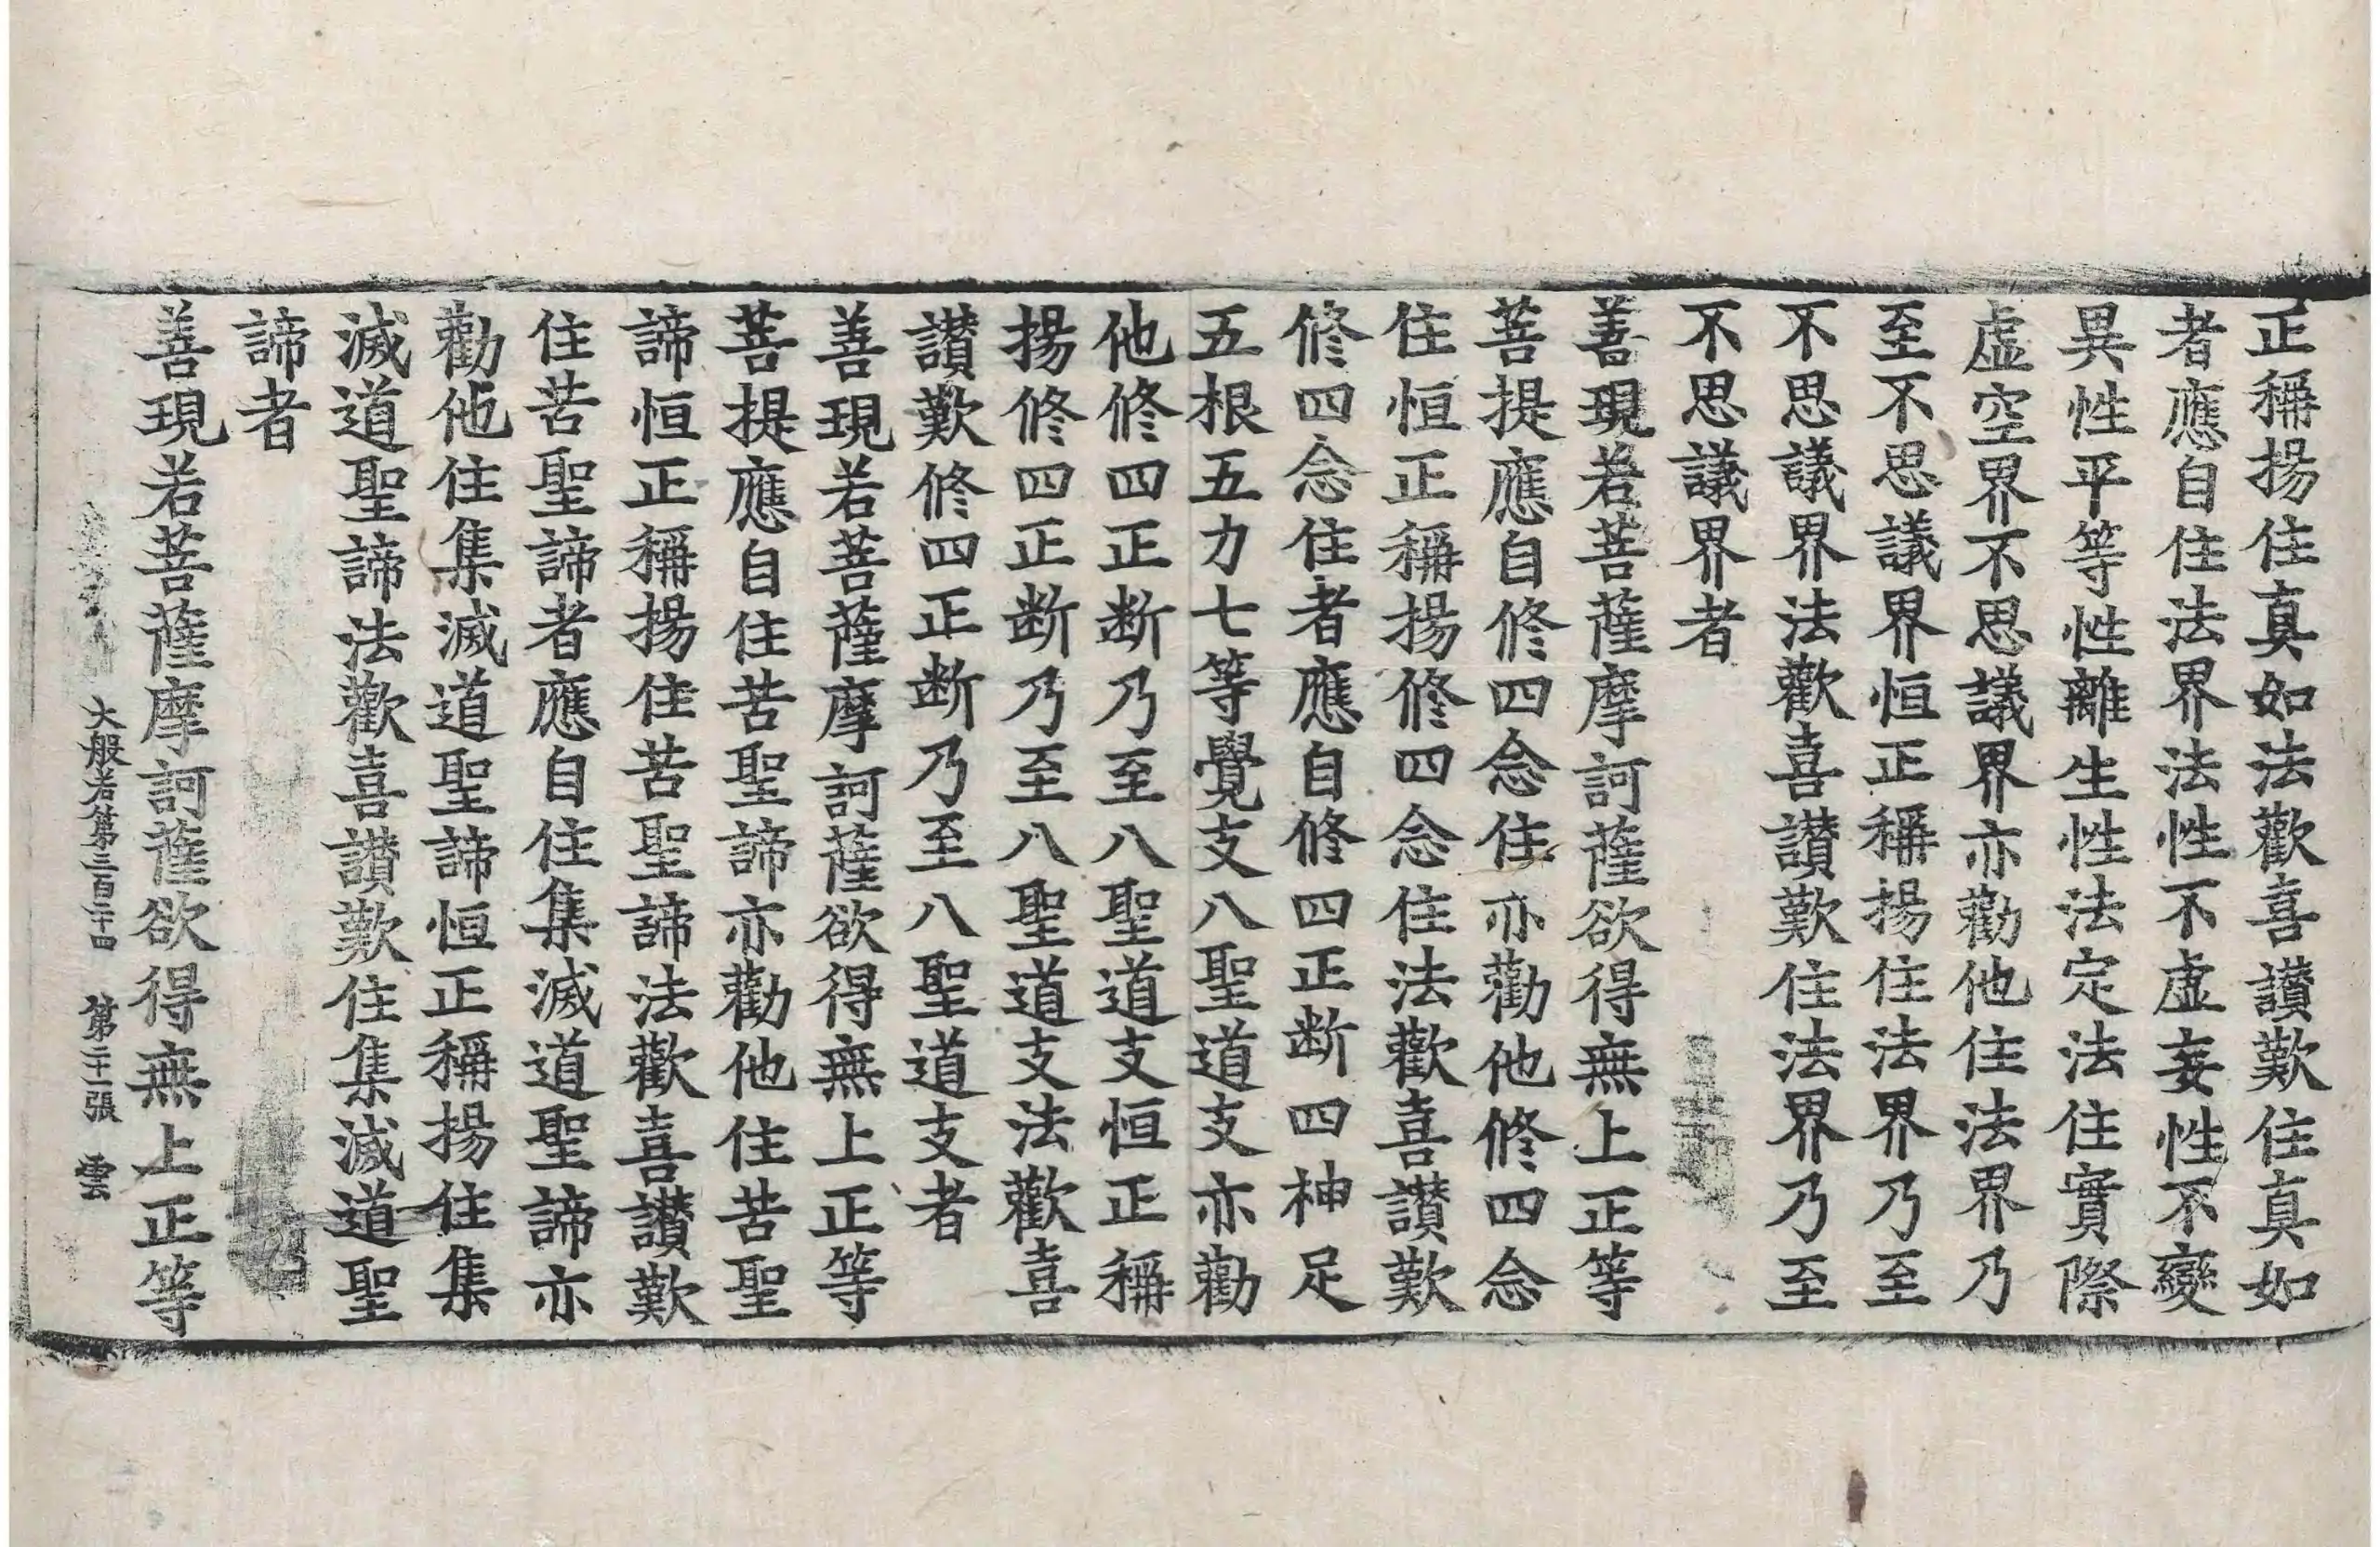 正稱揚住真如法歡喜讃歎住真如
者應自住法界法性不虛妄性不變
異性平等性離生性法定法住實際
虛空界不思議界亦勸他住法界乃
至不思議界恒正稱揚住法界乃至
不思議界法歡喜讃歎住法界乃至
不思議界者
善現若菩薩摩訶薩欲得無上正等
菩提應自修四念住亦勸他修四念
住恒正稱揚修四念住法歡喜讃歎
修四念住者應自修四正断四神足
五根五力七等覺支八聖道支亦勸
他修四正断乃至八聖道支恒正稱
揚修四正断乃至八聖道支法歡喜
讃歎修四正断乃至八聖道支者
善現若菩薩摩訶薩欲得無上正等
菩提應自住苦聖諦亦勸他住苦聖
諦恒正稱揚住苦聖諦法歡喜讃歎
住苦聖諦者應自住集滅道聖諦亦
勸他住集滅道聖諦恒正稱揚住集
滅道聖諦法歡喜讃歎住集滅道聖
諦者
善現若菩薩摩訶薩欲得無上正等
大般若第三百二十四 第二十一張 雲